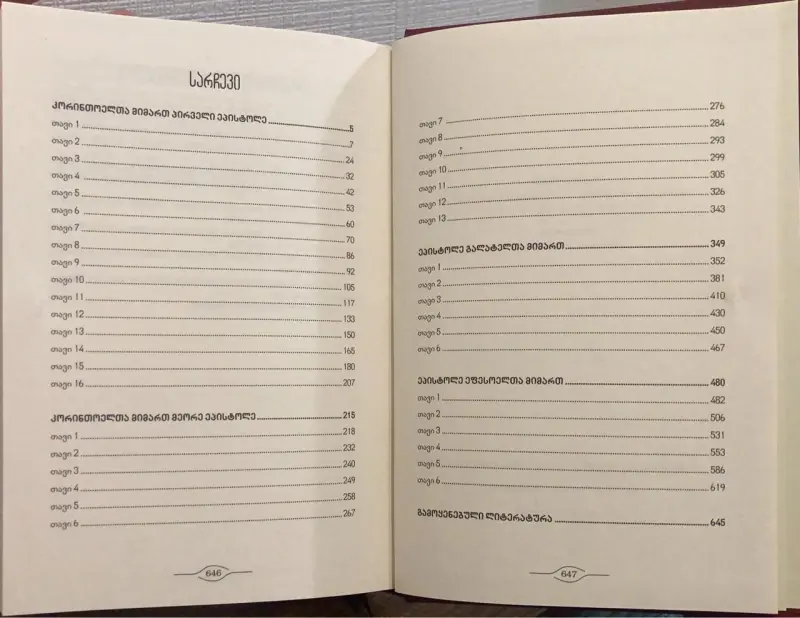 სარჩევი
კორინთოელთა მიმართ პირველი ეპისტოლე 5
თავი 1 7
თავი 2 24
თავი 3 32
თავი 4 42
თავი 5 53
თავი 6 60
თავი 7 70
თავი 8 86
თავი 9 92
თავი 10 105
თავი 11 117
თავი 12 133
თავი 13 150
თავი 14 165
თავი 15 180
თავი 16 207
კორინთოელთა მიმართ მეორე ეპისტოლე 215
თავი 1 218
თავი 2 232
თავი 3 240
თავი 4 249
თავი 5 258
თავი 6 267
646
თავი 7 276
თავი 8 284
თავი 9 293
თავი 10 299
თავი 11 305
თავი 12 326
თავი 13 343
ეპისტოლე გალატელთა მიმართ 349
თავი 1 352
თავი 2 381
თავი 3 410
თავი 4 430
თავი 5 450
თავი 6 467
ეპისტოლე ეფესოელთა მიმართ 480
თავი 1 482
თავი 2 506
თავი 3 531
თავი 4 553
თავი 5 586
თავი 6 619
გამოყენებული ლიტერატურა 645
647